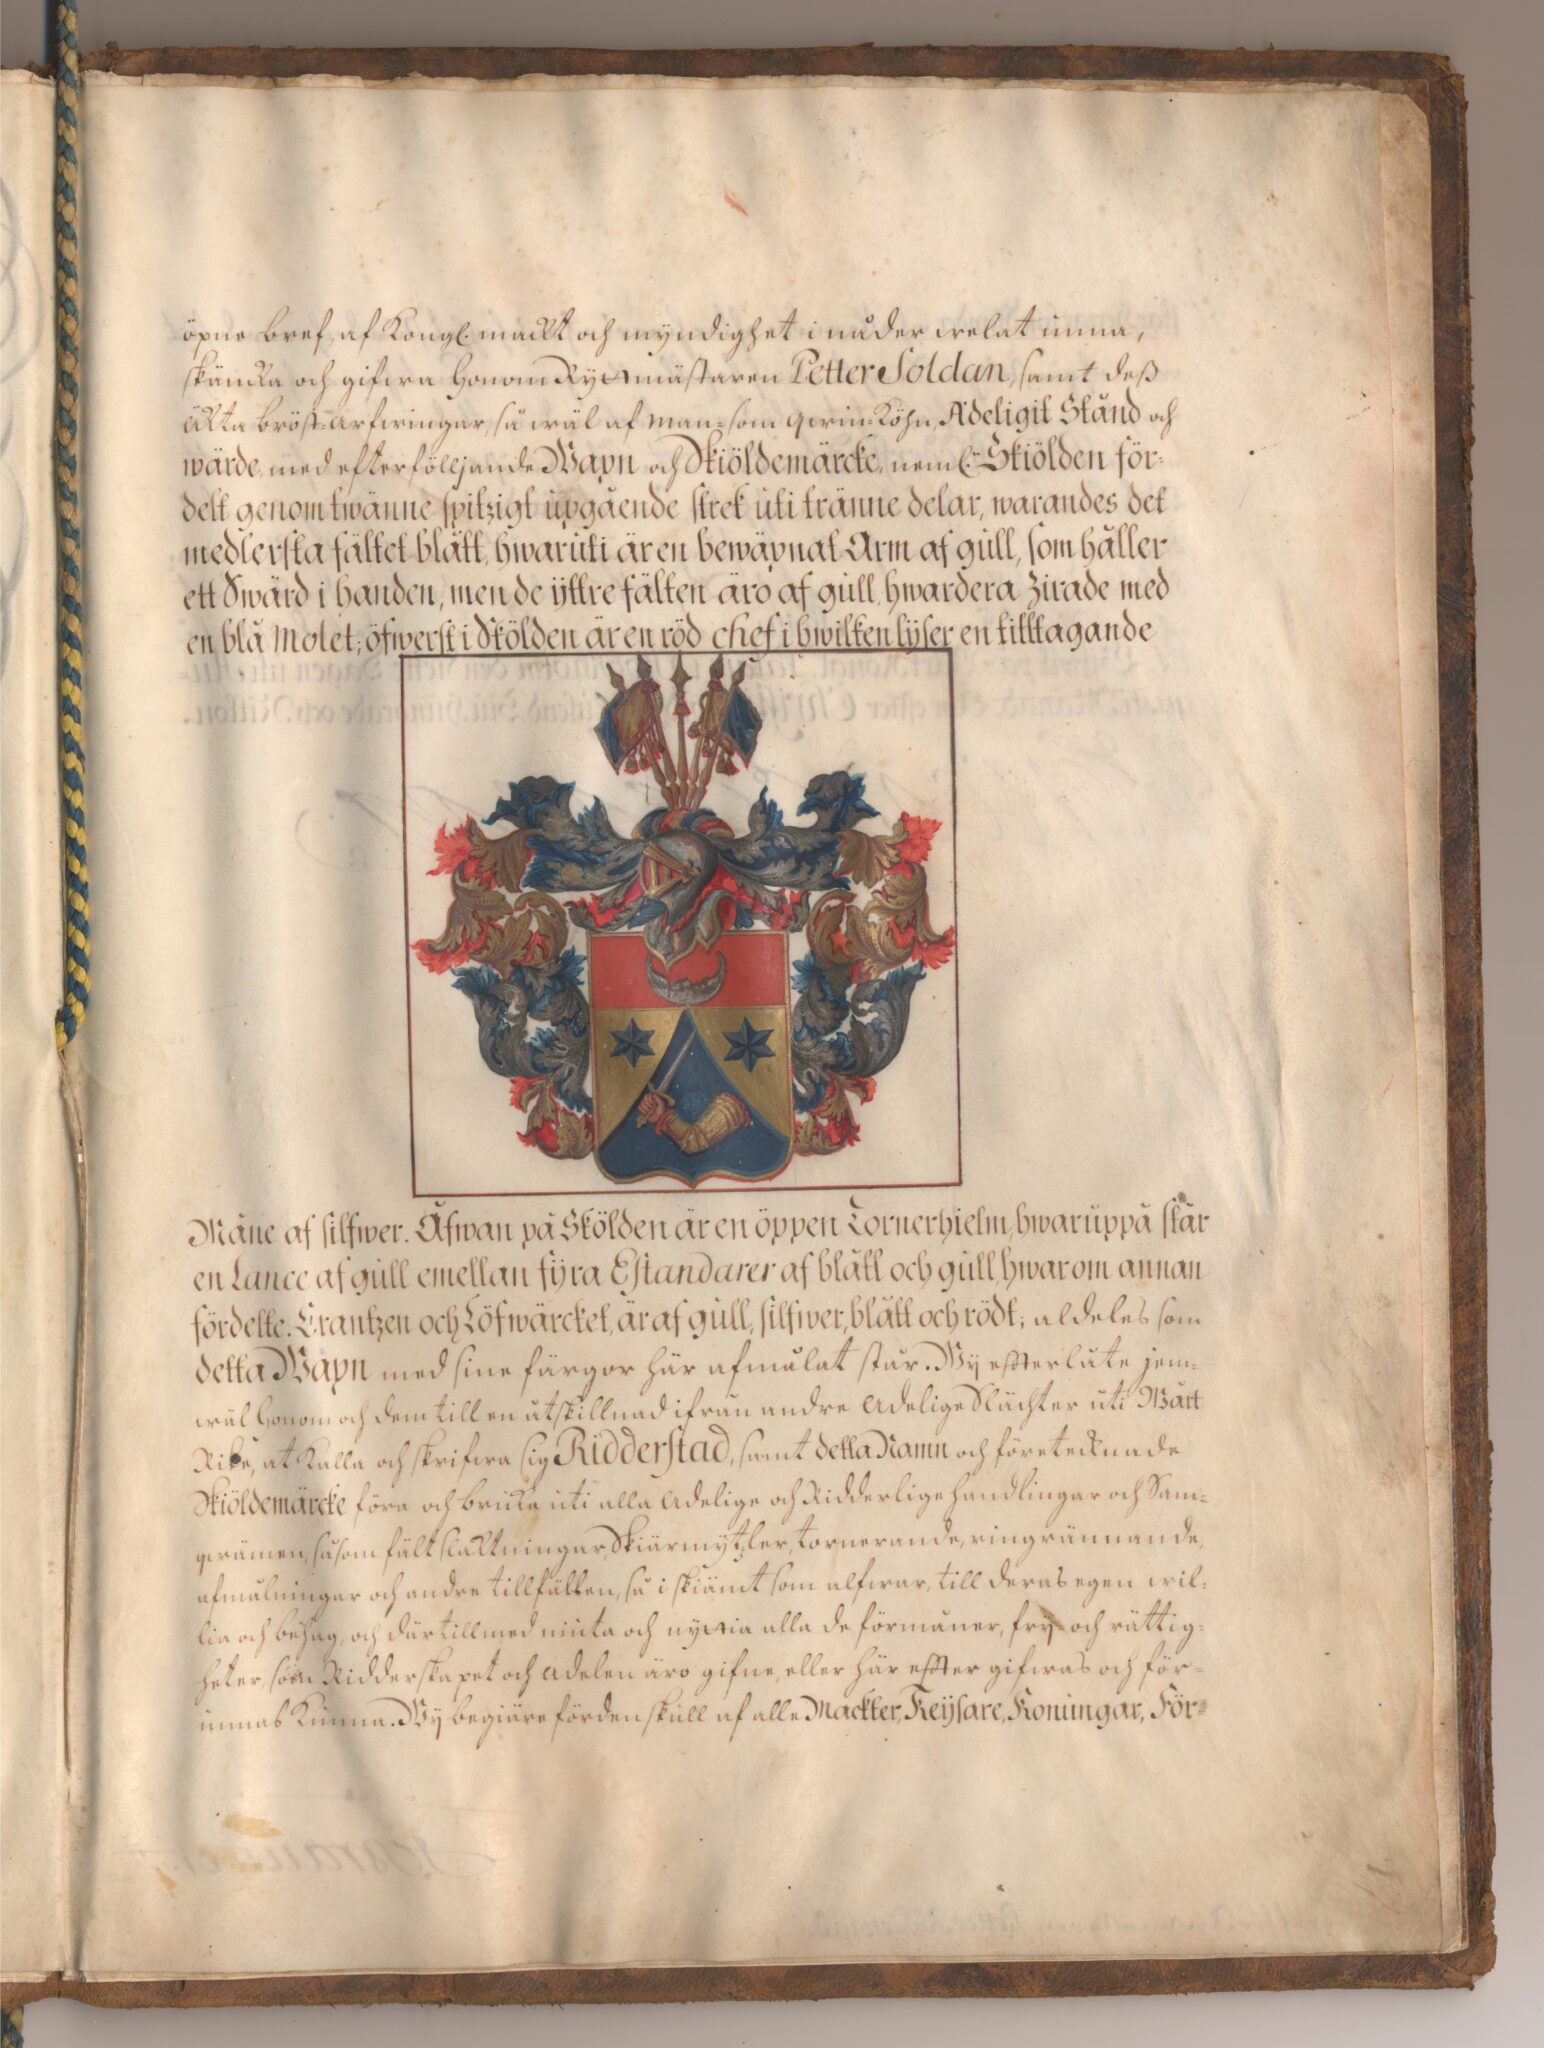 öpne bref, af Kongl. mackt och myndighet i nåder welat unna,
skäncka och gifwa honom Ryttmästaren Petter Soldan, samt deß
äckta bröst-arfwingar, så wäl af man- som qwin-Köhn, Adeligit Stånd och
wärde, med efterfölljande Wapn och Skiöldemärcke, neml. Skiölden för-
delt genom twänne spitzigt upgående strek uti tränne delar, warandes det
medlersta fältet blått, hwaruti är en bewäpnat Arm af gull, som håller
ett Swärd i handen, men de yttre fälten äro af gull, hwardera Zirade med
en blå Molet; öfwerst i Skölden är en röd chef i hwilken lyser en tilltagande
Måne af silfwer. Åfwan på Skölden är en öppen Tornerhielm, hwaruppå står
en Lance af gull emellan fyra Estandarer af blått och gull, hwarom annan
fördelte. Crantzen och Löfwärcket, är af gull, silfwer, blått och rödt; aldeles som
detta Wapn med sine färgor här afmålat står. Wy efterlåte jem-
wäl honom och dem till en åtskillnad ifrån andre Adelige Slächter uti Wårt
Rike, at kalla och skrifwa sig Ridderstad, samt detta Namn och företecknade
Skiöldemärcke föra och bruka uti alla Adelige och Ridderlige handlingar och Sam-
qwämen, såsom fältslacktningar, Skiärmytzler, tornerande, ringrännande,
afmålningar och andre tillfällen, så i skiämt som alfwar, till deras egen wil-
lia och behag, och där till med niuta och nyttia alla de förmåner, fry- och rättig-
heter, som Ridderskapet och Adelen äro gifne, eller här effter gifwas och för-
unnas kunna. Wy begiäre fördenskull af alle Mackter, Keysare, Konungar, För-